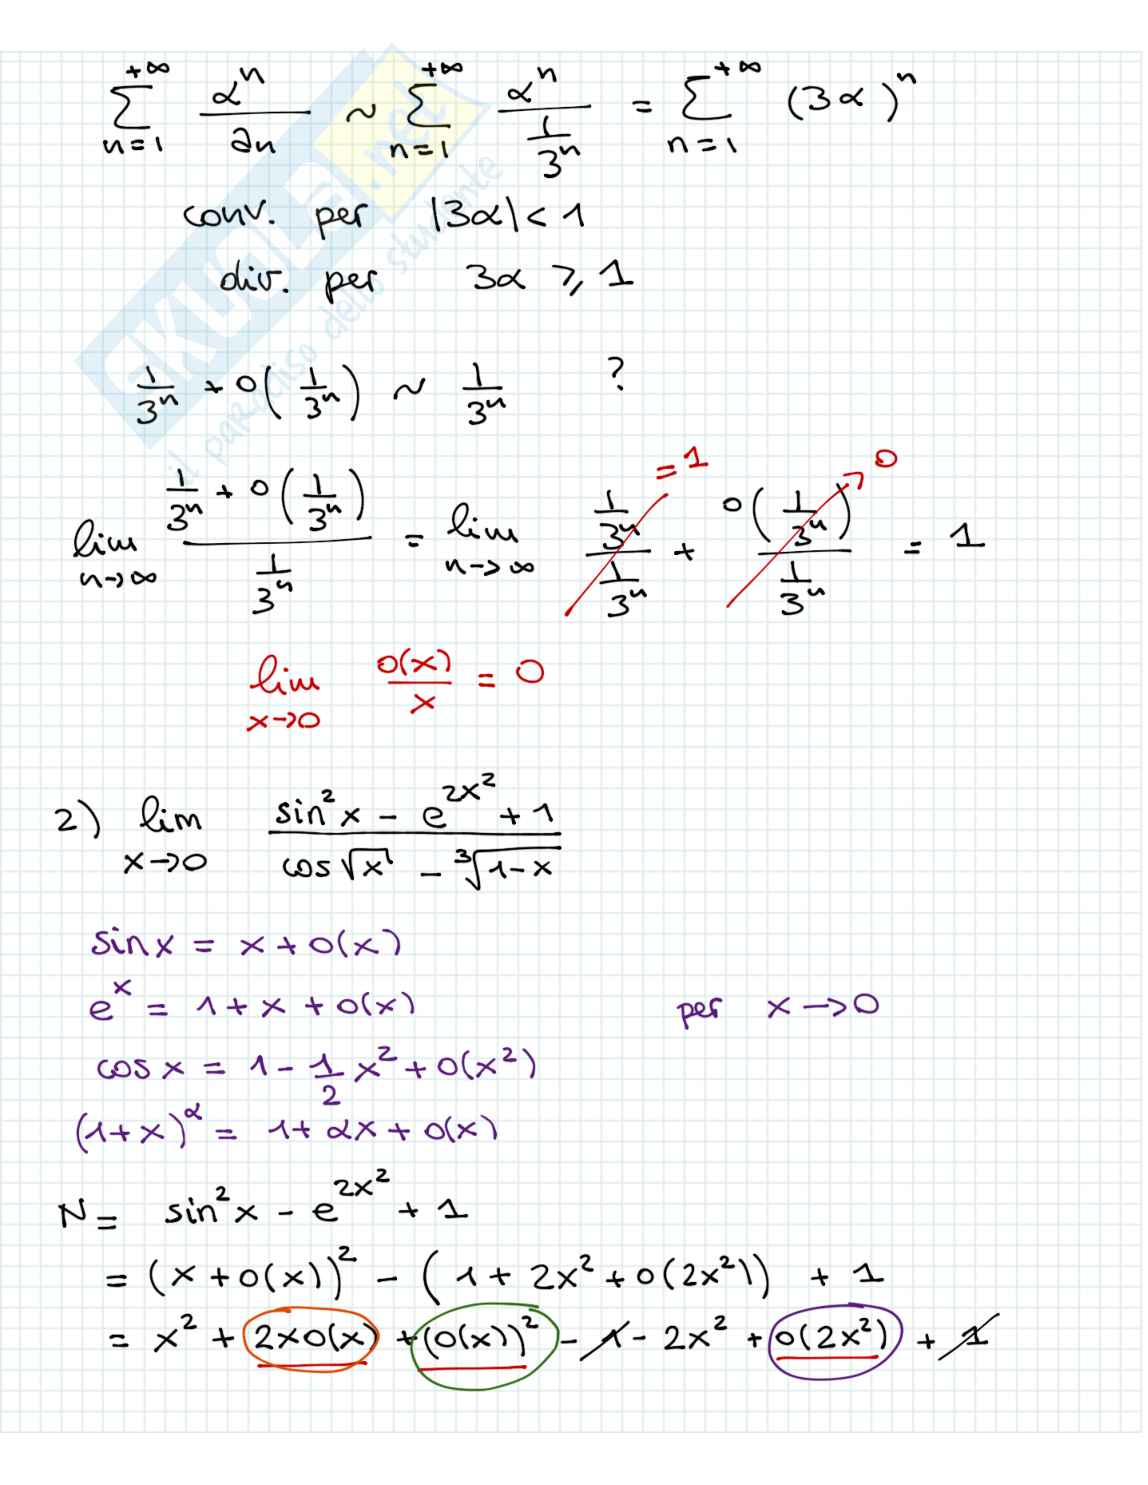 \sum_{n=1}^{+\infty} \frac{\alpha^n}{a_n} \sim \sum_{n=1}^{+\infty} \frac{\alpha^n}{\frac{1}{3^n}} = \sum_{n=1}^{+\infty} (3\alpha)^n
conv. per |3α| < 1
div. per 3α ⩾ 1
\frac{1}{3^n} + o(\frac{1}{3^n}) \sim \frac{1}{3^n} ?
\lim_{n→∞} \frac{\frac{1}{3^n} + o(\frac{1}{3^n})}{\frac{1}{3^n}} = \lim_{n→∞} \frac{\frac{1}{3^n}}{\frac{1}{3^n}} + \frac{o(\frac{1}{3^n})}{\frac{1}{3^n}} = 1
= 1
→ 0
\lim_{x→0} \frac{o(x)}{x} = 0
2) \lim_{x→0} \frac{\sin^2 x - e^{2x^2} + 1}{\cos\sqrt{x} - \sqrt[3]{1-x}}
sin x = x + o(x)
e^x = 1 + x + o(x) per x → 0
cos x = 1 - \frac{1}{2} x^2 + o(x^2)
(1+x)^α = 1 + αx + o(x)
N = sin^2 x - e^{2x^2} + 1
= (x + o(x))^2 - (1 + 2x^2 + o(2x^2)) + 1
= x^2 + 2xo(x) + (o(x))^2 - 1 - 2x^2 + o(2x^2) + 1
SKUOLA.net
il paradiso dello studente